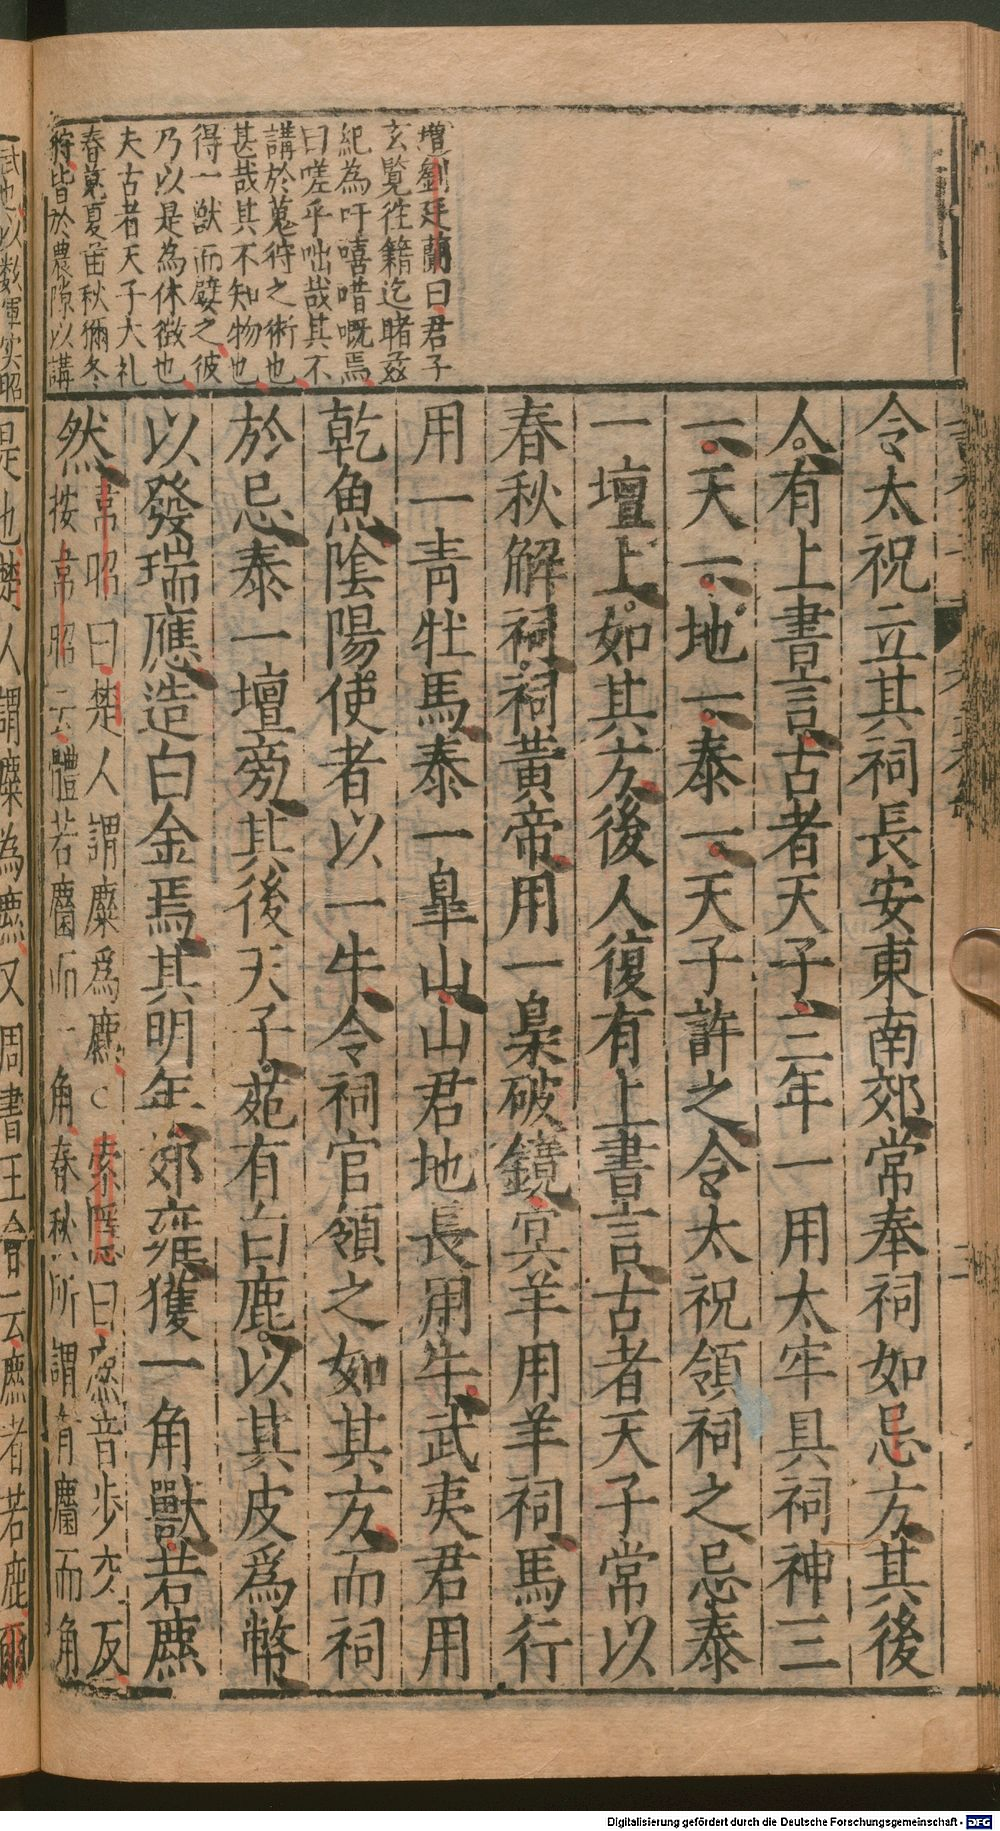 增劉廷蘭曰君子
玄覧徃籍迄睹茲
紀為吁嘻唶嘅焉
曰嗟乎咄哉其不
講於蒐狩之術也
甚哉其不知物也
得一獣而嬖之彼
乃以是為休徴也
夫古者天子大礼
春蒐夏苗秋獮冬
狩皆於農隙以講
令太祝立其祠長安東南郊常奉祠如忌方其後
人有上書言古者天子三年一用太牢具祠神三
一天一地一泰一天子許之令太祝領祠之忌泰
一壇上如其方後人復有上書言古者天子常以
春秋解祠祠黄帝用一梟破鏡冥羊用羊祠馬行
用一青牡馬泰一皐山山君地長用牛武夷君用
乾魚陰陽使者以一牛令祠官領之如其方而祠
於忌泰一壇旁其後天子苑有白鹿以其皮爲幣
以發瑞應造白金焉其明年郊雍獲一角獸若麃
然韋昭曰楚人謂麋爲麃 索隱曰麃音步交反
按韋昭云體若麕而一角春秋所謂有麕而角
是也楚人謂麋為麃又周書王會云麃者若鹿爾
Digitalisierung gefördert durch die Deutsche Forschungsgemeinschaft - DFG